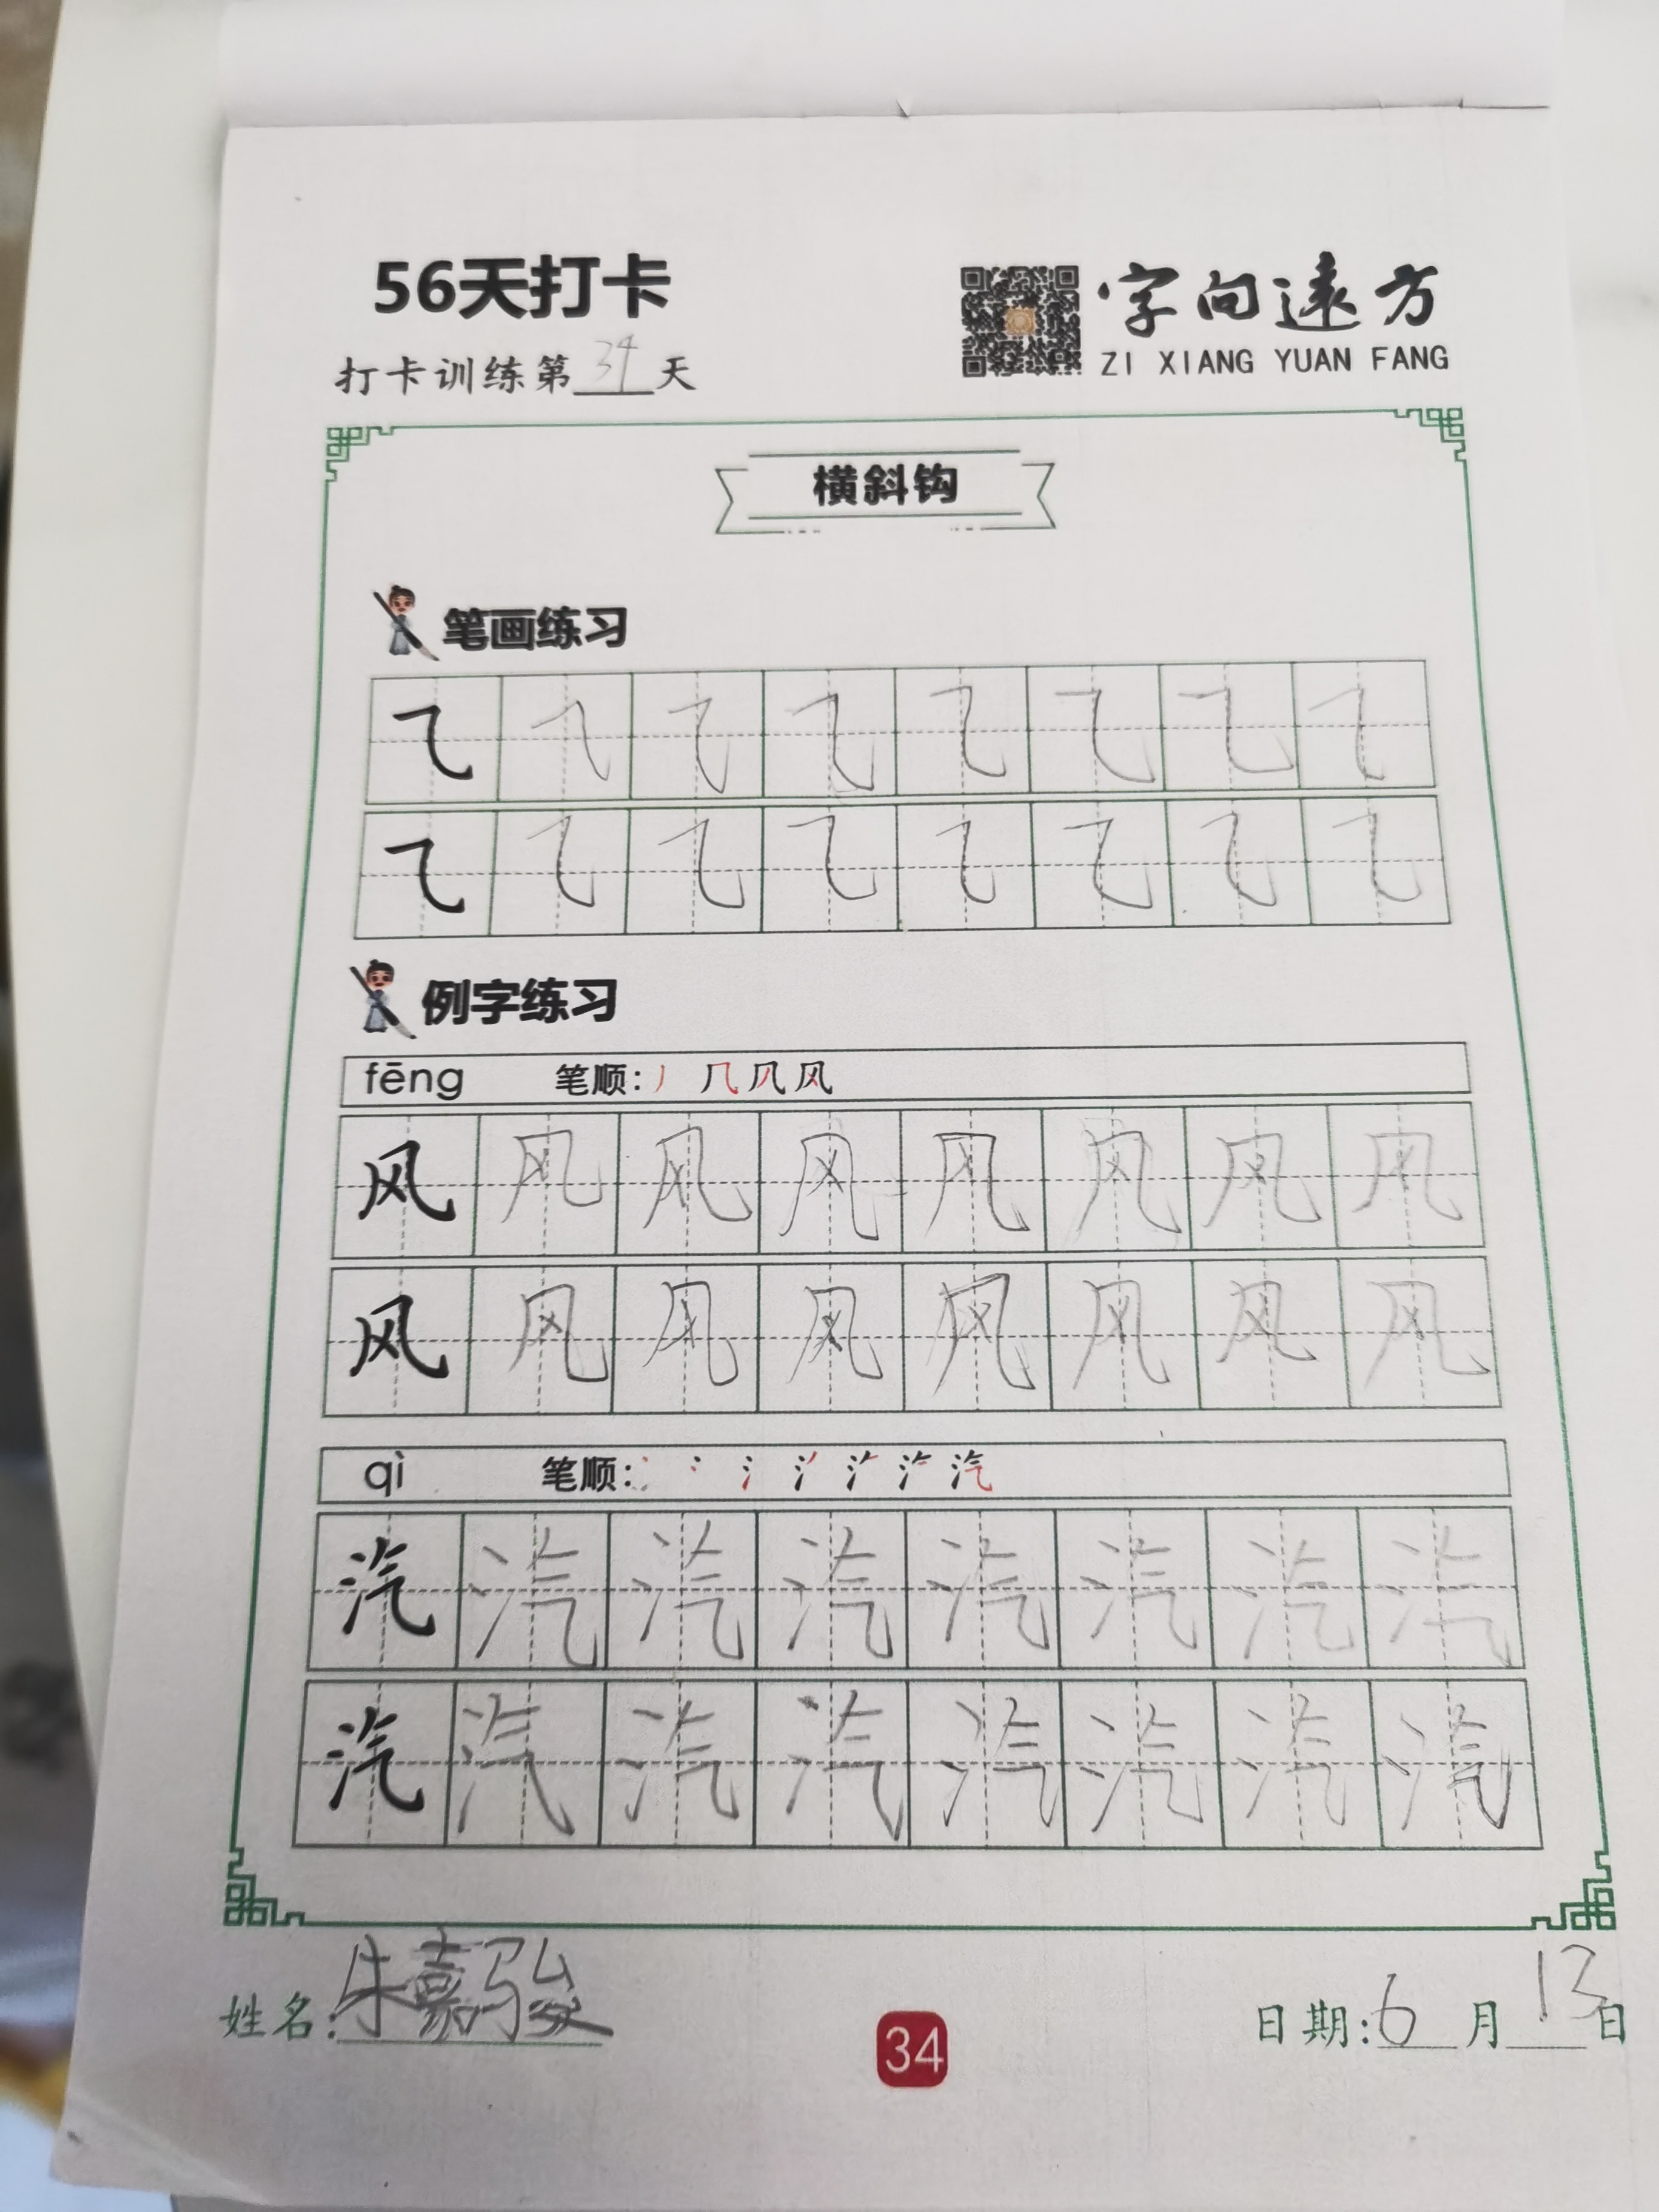 56天打卡
字向遠方
打卡训练第34天
ZI XIANG YUAN FANG
横斜钩
笔画练习
例字练习
fēng 笔顺:丿 几 风
风 风 风 风 风 风 风 风
风 风 风 风 风 风 风 风
qì 笔顺: 汽
汽 汽 汽 汽 汽 汽 汽 汽
汽 汽 汽 汽 汽 汽 汽 汽
姓名:朱嘉骏
34
日期:6月13日